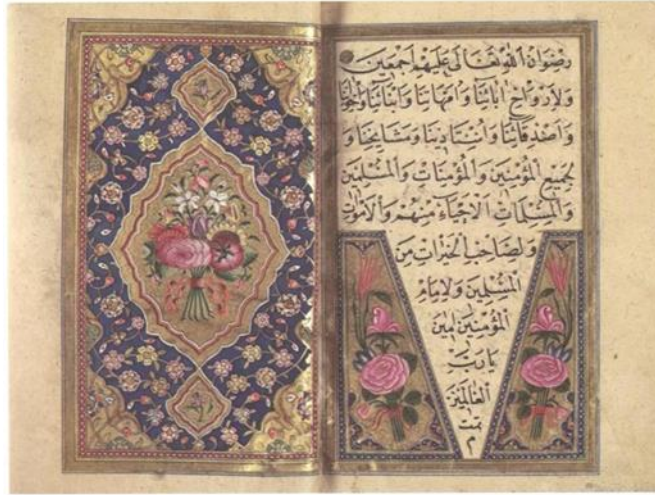 رِضْوَانُ اللّٰهِ تَعَالٰى عَلَيْهِمْ اَجْمَعِينَ
وَلِاَرْوَاحِ اٰبَائِنَا وَاُمَّهَاتِنَا وَاَبْنَائِنَا وَاِخْوَانِنَا
وَاَصْدِقَائِنَا وَاُسْتَادِينَا وَمَشَايِخِنَا وَ
لِجَمِيعِ الْمُؤْمِنِينَ وَالْمُؤْمِنَاتِ وَالْمُسْلِمِينَ
وَالْمُسْلِمَاتِ الْاَحْيَاءِ مِنْهُمْ وَالْاَمْوَاتِ
وَلِصَاحِبِ الْخَيْرَاتِ مِنَ
الْمُسْلِمِينَ وَلِاِمَامِ
الْمُؤْمِنِينَ اٰمِينَ
يَا رَبَّ
الْعَالَمِينَ
تمت
م